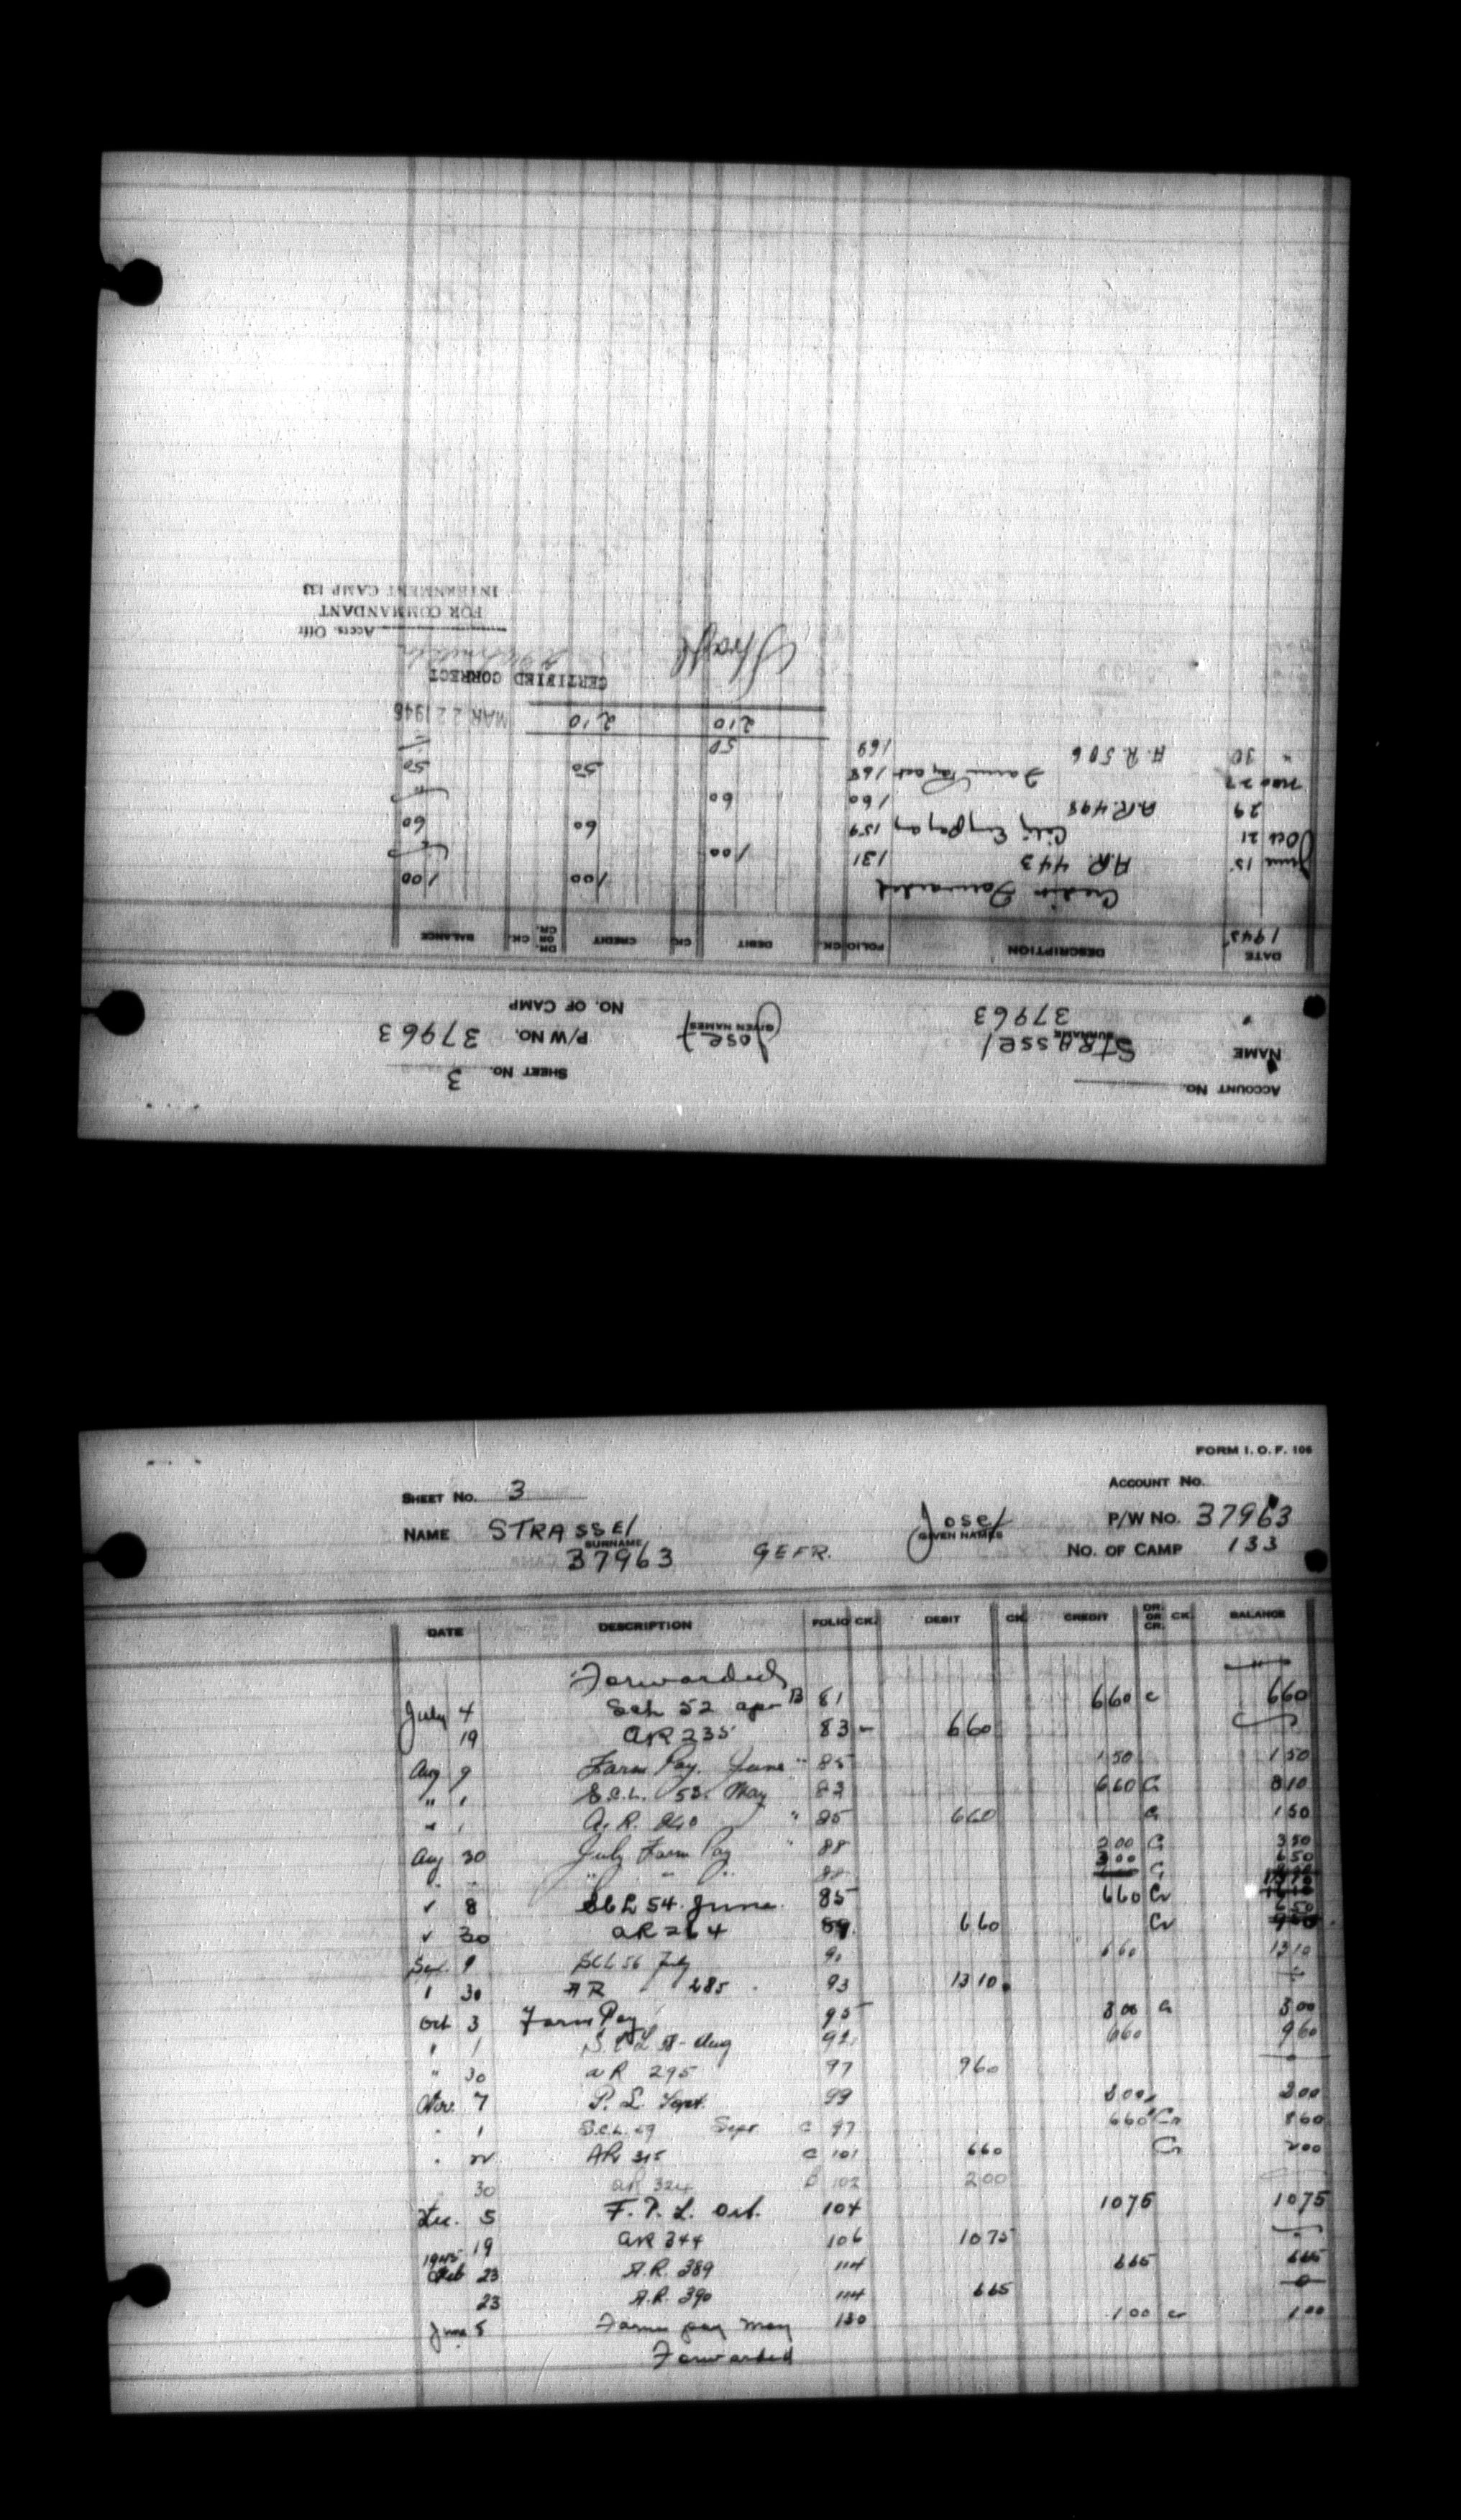 FORM I. O. F. 106
SHEET No. 3 ACCOUNT No.
NAME STRASSEl Josef P/W No. 37963
SURNAME GIVEN NAMES
37963 GEFR. No. OF CAMP 133
DATE DESCRIPTION FOLIO CK. DEBIT CK. CREDIT DR. OR CR. CK. BALANCE
Forwarded
July 4 Sch 52 apr B 81 660 c 660
19 AR 235 83 660
Aug 9 Farm Pay. June " 85 1 50 1 50
" 1 S.C.L. 53. May 82 660 Cr 810
" 1 A.R. " 85 660 Cr 1 50
Aug 30 July Farm Pay " 88 200 Cr 350
" " " " " 300 Cr 650
8 SCL 54. June 85 660 Cr
30 AR 264 660 Cr
Sept. 9 SCL 56 July 90 660 1310
30 AR 285 93 1310
Oct 3 Farm Pay 95 300 Cr 300
" 1 S.C.L - Aug 92 660 960
" 30 AR 295 97 960
Nov. 7 Sept. 99 200 200
" 1 S.C.L. 59 Sept. C 97 660 Cr 860
AR 315 C 101 660 Cr 200
30 AR 324 102 200
Dec. 5 F. P. L. Oct. 104 1075 1075
19 AR 344 106 1075
1945
Feb 23 A.R. 389 114 665 665
23 A.R. 390 114 665 0
June 5 Farm pay May 130 100 cr 100
Forwarded
ACCOUNT No. SHEET No. 3
NAME STRASSEl Josef P/W No. 37963
SURNAME GIVEN NAMES
37963 No. OF CAMP
DATE DESCRIPTION FOLIO CK. DEBIT CK. CREDIT DR. OR CR. CK. BALANCE
1945
Credit Forwarded 100 100
June 15 A.R. 443 131 100
Oct 21 Pay 159 60 60
29 A.R. 498 160 60
Nov 27 Farm Pay Oct 168 50 50
" 30 A.R. 506 169 50
210 210 MAR 22 1946
CERTIFIED CORRECT
Accts. Offr.
FOR COMMANDANT
INTERNMENT CAMP 133